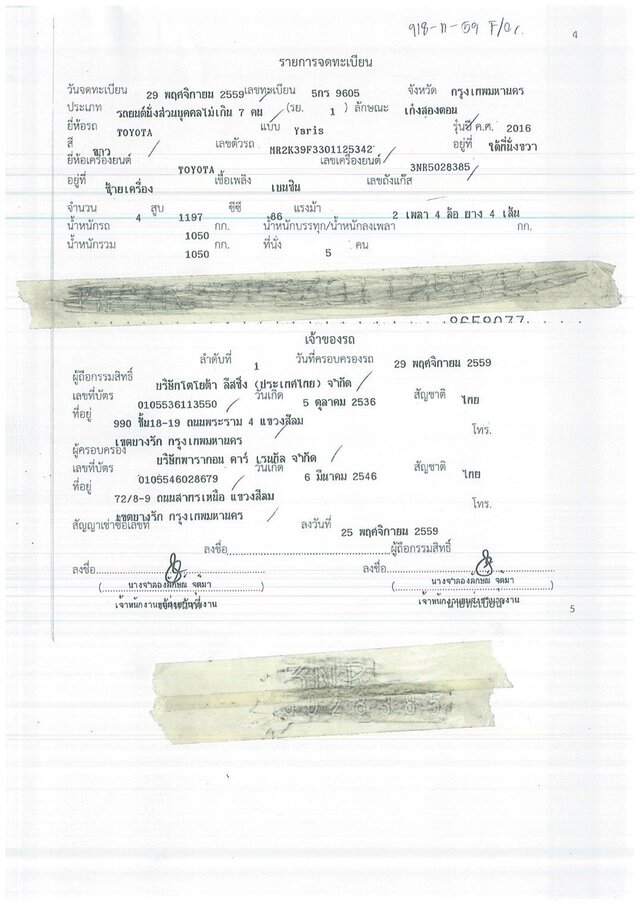 918-ก-59 F/Cr.
4
รายการจดทะเบียน
วันจดทะเบียน 29 พฤศจิกายน 2559 เลขทะเบียน 5กร 9605 จังหวัด กรุงเทพมหานคร
ประเภท รถยนต์นั่งส่วนบุคคลไม่เกิน 7 คน (รย. 1 ) ลักษณะ เก๋งสองตอน
ยี่ห้อรถ TOYOTA แบบ Yaris รุ่นปี ค.ศ. 2016
สี ขาว เลขตัวรถ MR2K39F3301125342 อยู่ที่ ใต้ที่นั่งขวา
ยี่ห้อเครื่องยนต์ TOYOTA เลขเครื่องยนต์ 3NR5028385
อยู่ที่ ซ้ายเครื่อง เชื้อเพลิง เบนซิน เลขถังแก๊ส
จำนวน 4 สูบ 1197 ซีซี 86 แรงม้า 2 เพลา 4 ล้อ ยาง 4 เส้น
น้ำหนักรถ 1050 กก. น้ำหนักบรรทุก/น้ำหนักลงเพลา กก.
น้ำหนักรวม 1050 กก. ที่นั่ง 5 คน
เจ้าของรถ
ลำดับที่ 1 วันที่ครอบครองรถ 29 พฤศจิกายน 2559
ผู้ถือกรรมสิทธิ์ บริษัทโตโยต้า ลีสซิ่ง (ประเทศไทย) จำกัด
เลขที่บัตร 0105536113550 วันเกิด 5 ตุลาคม 2536 สัญชาติ ไทย
ที่อยู่ 990 ชั้น18-19 ถนนพระราม 4 แขวงสีลม
เขตบางรัก กรุงเทพมหานคร โทร.
ผู้ครอบครอง บริษัทพารากอน คาร์ เรนทัล จำกัด
เลขที่บัตร 0105546028679 วันเกิด 6 มีนาคม 2546 สัญชาติ ไทย
ที่อยู่ 72/8-9 ถนนสาทรเหนือ แขวงสีลม
เขตบางรัก กรุงเทพมหานคร โทร.
สัญญาเช่าซื้อเลขที่ ลงวันที่ 25 พฤศจิกายน 2559
ลงชื่อ ผู้ถือกรรมสิทธิ์
ลงชื่อ ลงชื่อ
( นางจำลองลักษณ์ จิตมา ) ( นางจำลองลักษณ์ จิตมา )
นายทะเบียน
5
3NR
5028385